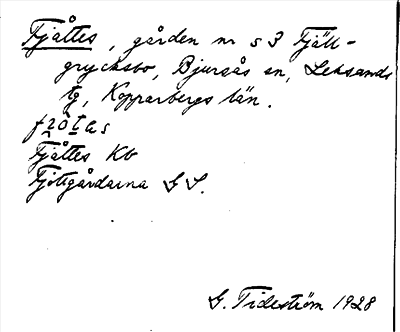 Fjåttes, gården nr s 3 Fjäll-
grycksbo, Bjursås sn, Leksands
tg, Kopparbergs län.
fʒòtas
Fjåttes Kb
Fjottgårdarna GS.
G. Tideström 1928